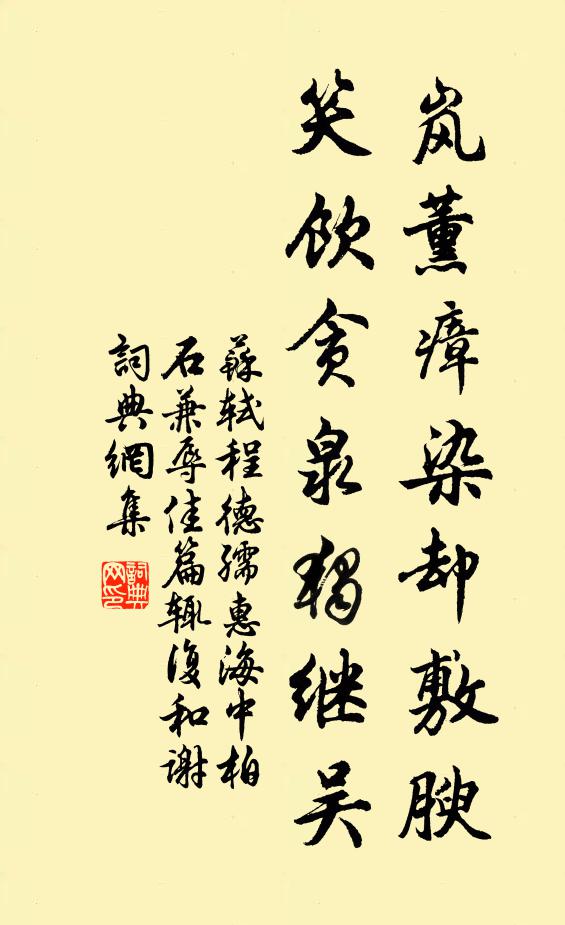 岚薰瘴染却敷腴
笑饮贪泉独继吴
蘇轼程德孺惠海中柏
石兼辱佳篇辄復和谢
詞典網集
詞典网印